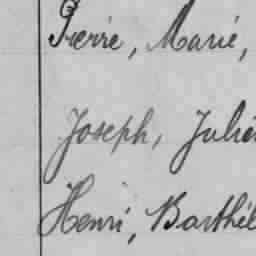 Pierre, Marie,
Joseph, Julien
Henri, Barthél